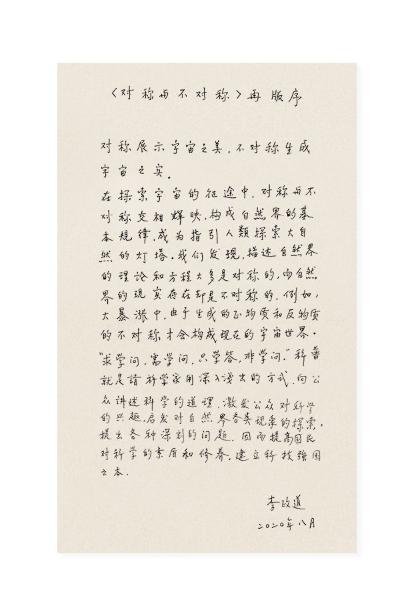 《对称与不对称》再版序
对称展示宇宙之美，不对称生成
宇宙之实。
在探索宇宙的征途中，对称与不
对称交相辉映，构成自然界的基
本规律，成为指引人類探索大自
然的灯塔。我们发现，描述自然界
的理论和方程大多是对称的，而自然
界的现实存在却是不对称的。例如，
大暴涨中，由于生成的正物质和反物质
的不对称才会构成现在的宇宙世界。
“求学问，需学问，只学答，非学问。”科普
就是請科学家用深入浅出的方式，向公
众讲述科学的道理，激发公众对科学
的兴趣，启发对自然界各类现象的探索，
提出各种深刻的问题，因而提高国民
对科学的素质和修养，建立科技强国
之本。
李政道
2020年八月